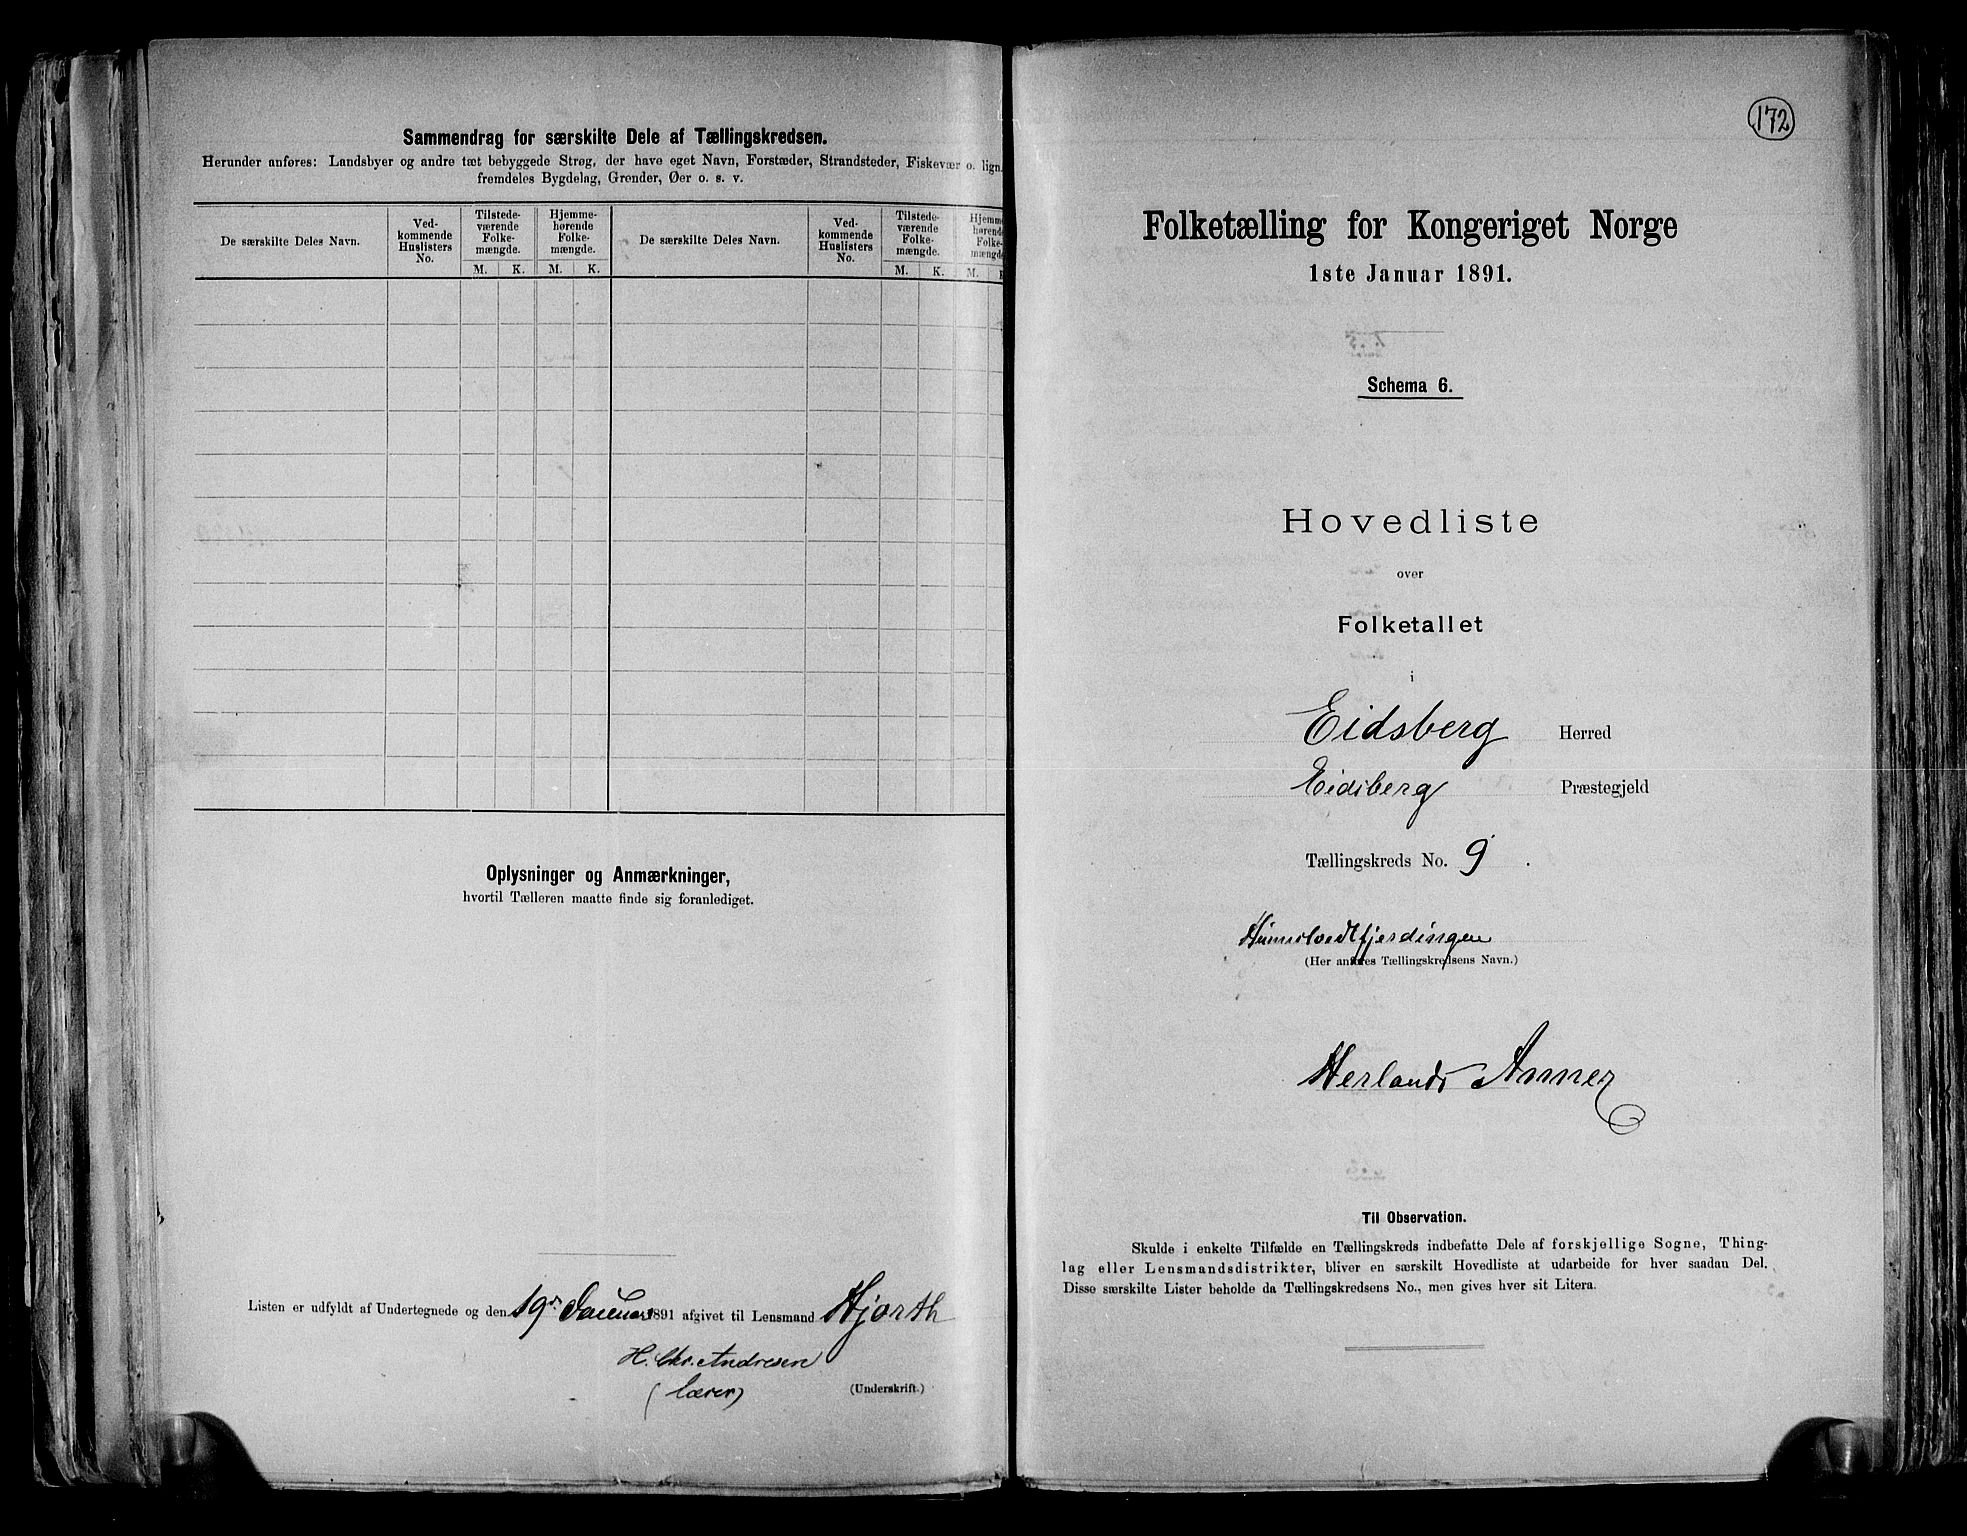 Sammendrag for særskilte Dele af Tællingskredsen.
Herunder anføres: Landsbyer og andre tæt bebyggede Strøg, der have eget Navn, Forstæder, Strandsteder, Fiskevær o. lign.
fremdeles Bygdelag, Grender, Øer o. s. v.
De særskilte Deles Navn.
Ved-
kommende
Huslisters
No.
Tilstede-
værende
Folke-
mængde.
M. K.
Hjemme-
hørende
Folke-
mængde.
M. K.
De særskilte Deles Navn.
Ved-
kommende
Huslisters
No.
Tilstede-
værende
Folke-
mængde.
M. K.
Hjemme
hørende
Folke-
mængde
M. K
Oplysninger og Anmærkninger,
hvortil Tælleren maatte finde sig foranlediget.
Listen er udfyldt af Undertegnede og den 19de Januar 1891 afgivet til Lensmand Hjorth
H. Chr. Andresen
(Lærer)
(Underskrift.)
172
Folketælling for Kongeriget Norge
1ste Januar 1891.
Schema 6.
Hovedliste
over
Folketallet
i
Eidsberg Herred
Eidsberg Præstegjeld
Tællingskreds No. 9.
(Her anføres Tællingskredsens Navn.)
Herlands Annex
Til Observation.
Skulde i enkelte Tilfælde en Tællingskreds indbefatte Dele af forskjellige Sogne, Thing-
lag eller Lensmandsdistrikter, bliver en særskilt Hovedliste at udarbeide for hver saadan Del.
Disse særskilte Lister beholde da Tællingskredsens No., men gives hver sit Litera.